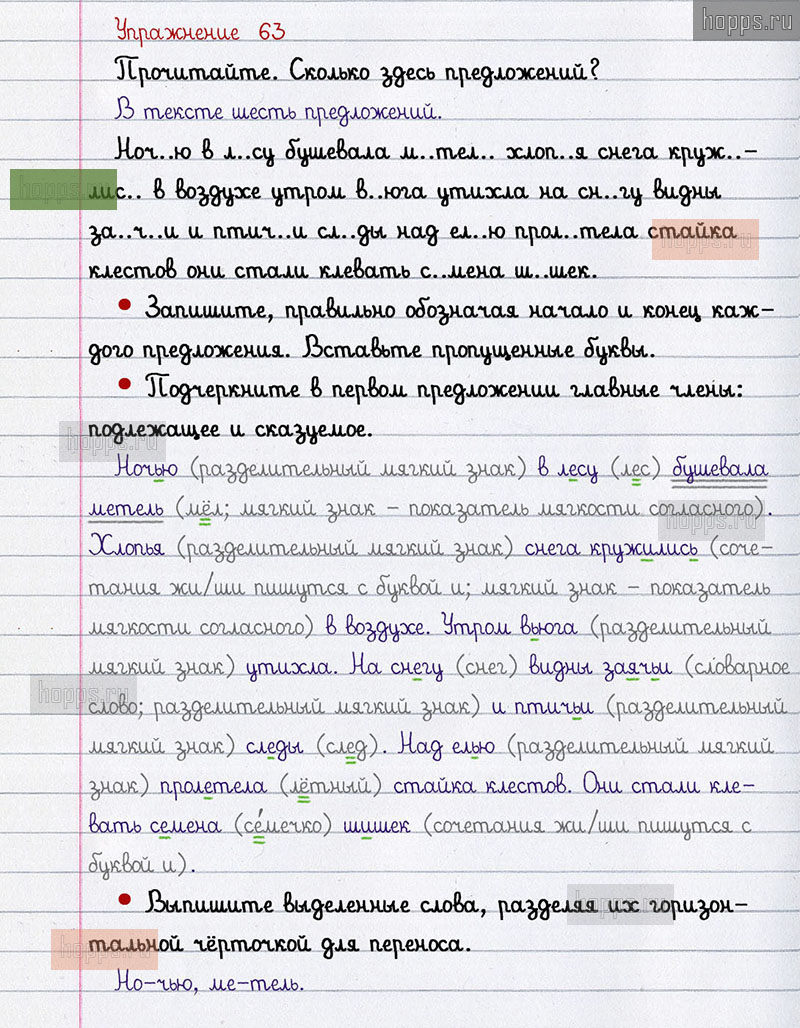 hopps.ru
Упражнение 63
Прочитайте. Сколько здесь предложений?
В тексте шесть предложений.
Ноч..ю в л..су бушевала м..тел.. хлоп..я снега круж..-
лис.. в воздухе утром в..юга утихла на сн..гу видны
за..ч..и и птич..и сл..ды над ел..ю прол..тела стайка
клестов они стали клевать с..мена ш..шек.
• Запишите, правильно обозначая начало и конец каж-
дого предложения. Вставьте пропущенные буквы.
• Подчеркните в первом предложении главные члены:
подлежащее и сказуемое.
Ночью (разделительный мягкий знак) в лесу (лес) бушевала
метель (мёл; мягкий знак – показатель мягкости согласного).
Хлопья (разделительный мягкий знак) снега кружились (соче-
тания жи/ши пишутся с буквой и; мягкий знак – показатель
мягкости согласного) в воздухе. Утром вьюга (разделительный
мягкий знак) утихла. На снегу (снег) видны заячьи (словарное
слово; разделительный мягкий знак) и птичьи (разделительный
мягкий знак) следы (след). Над елью (разделительный мягкий
знак) пролетела (лётный) стайка клестов. Они стали кле-
вать семена (се́мечко) шишек (сочетания жи/ши пишутся с
буквой и).
• Выпишите выделенные слова, разделяя их горизон-
тальной чёрточкой для переноса.
Но-чью, ме-тель.